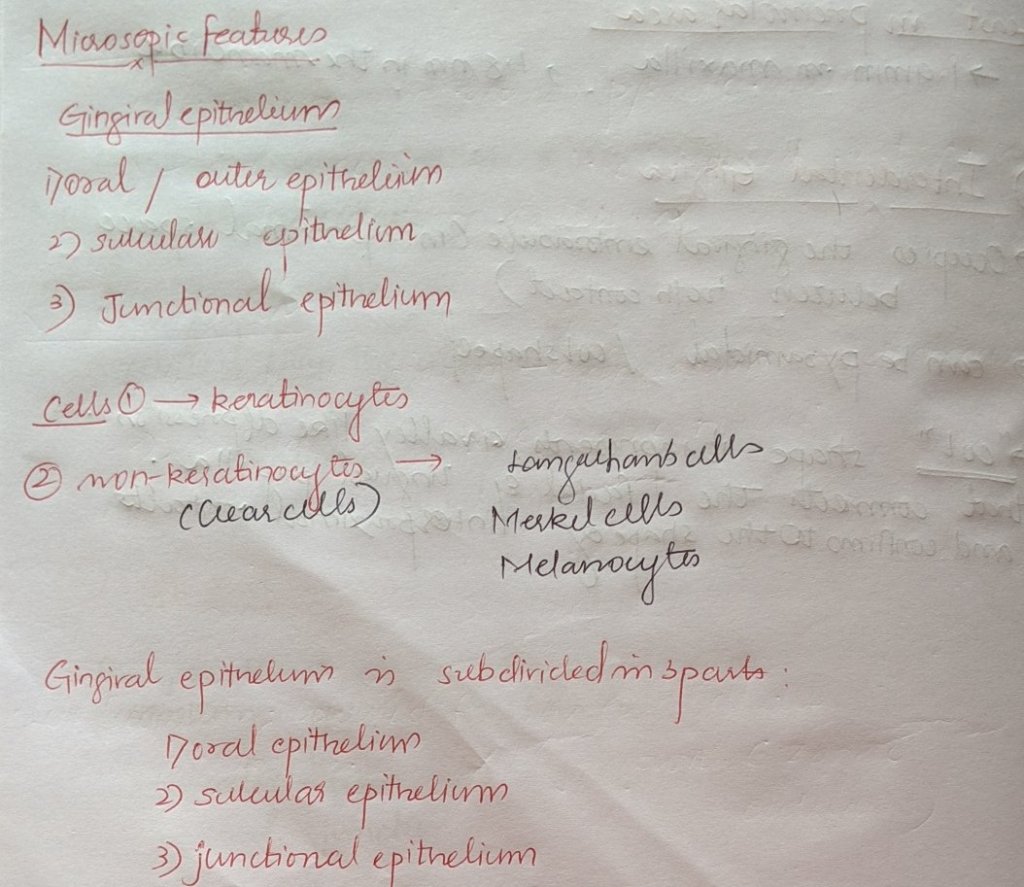 Microsopic features
Gingival epithelium
1) oral / outer epithelium
2) sulcular epithelium
3) Junctional epithelium
Cells ① → keratinocytes
② non-keratinocytes → Langerhans cells
(Clear cells) Merkel cells
Melanocytes
Gingival epithelium is subdivided in 3 parts :
1) oral epithelium
2) sulcular epithelium
3) junctional epithelium